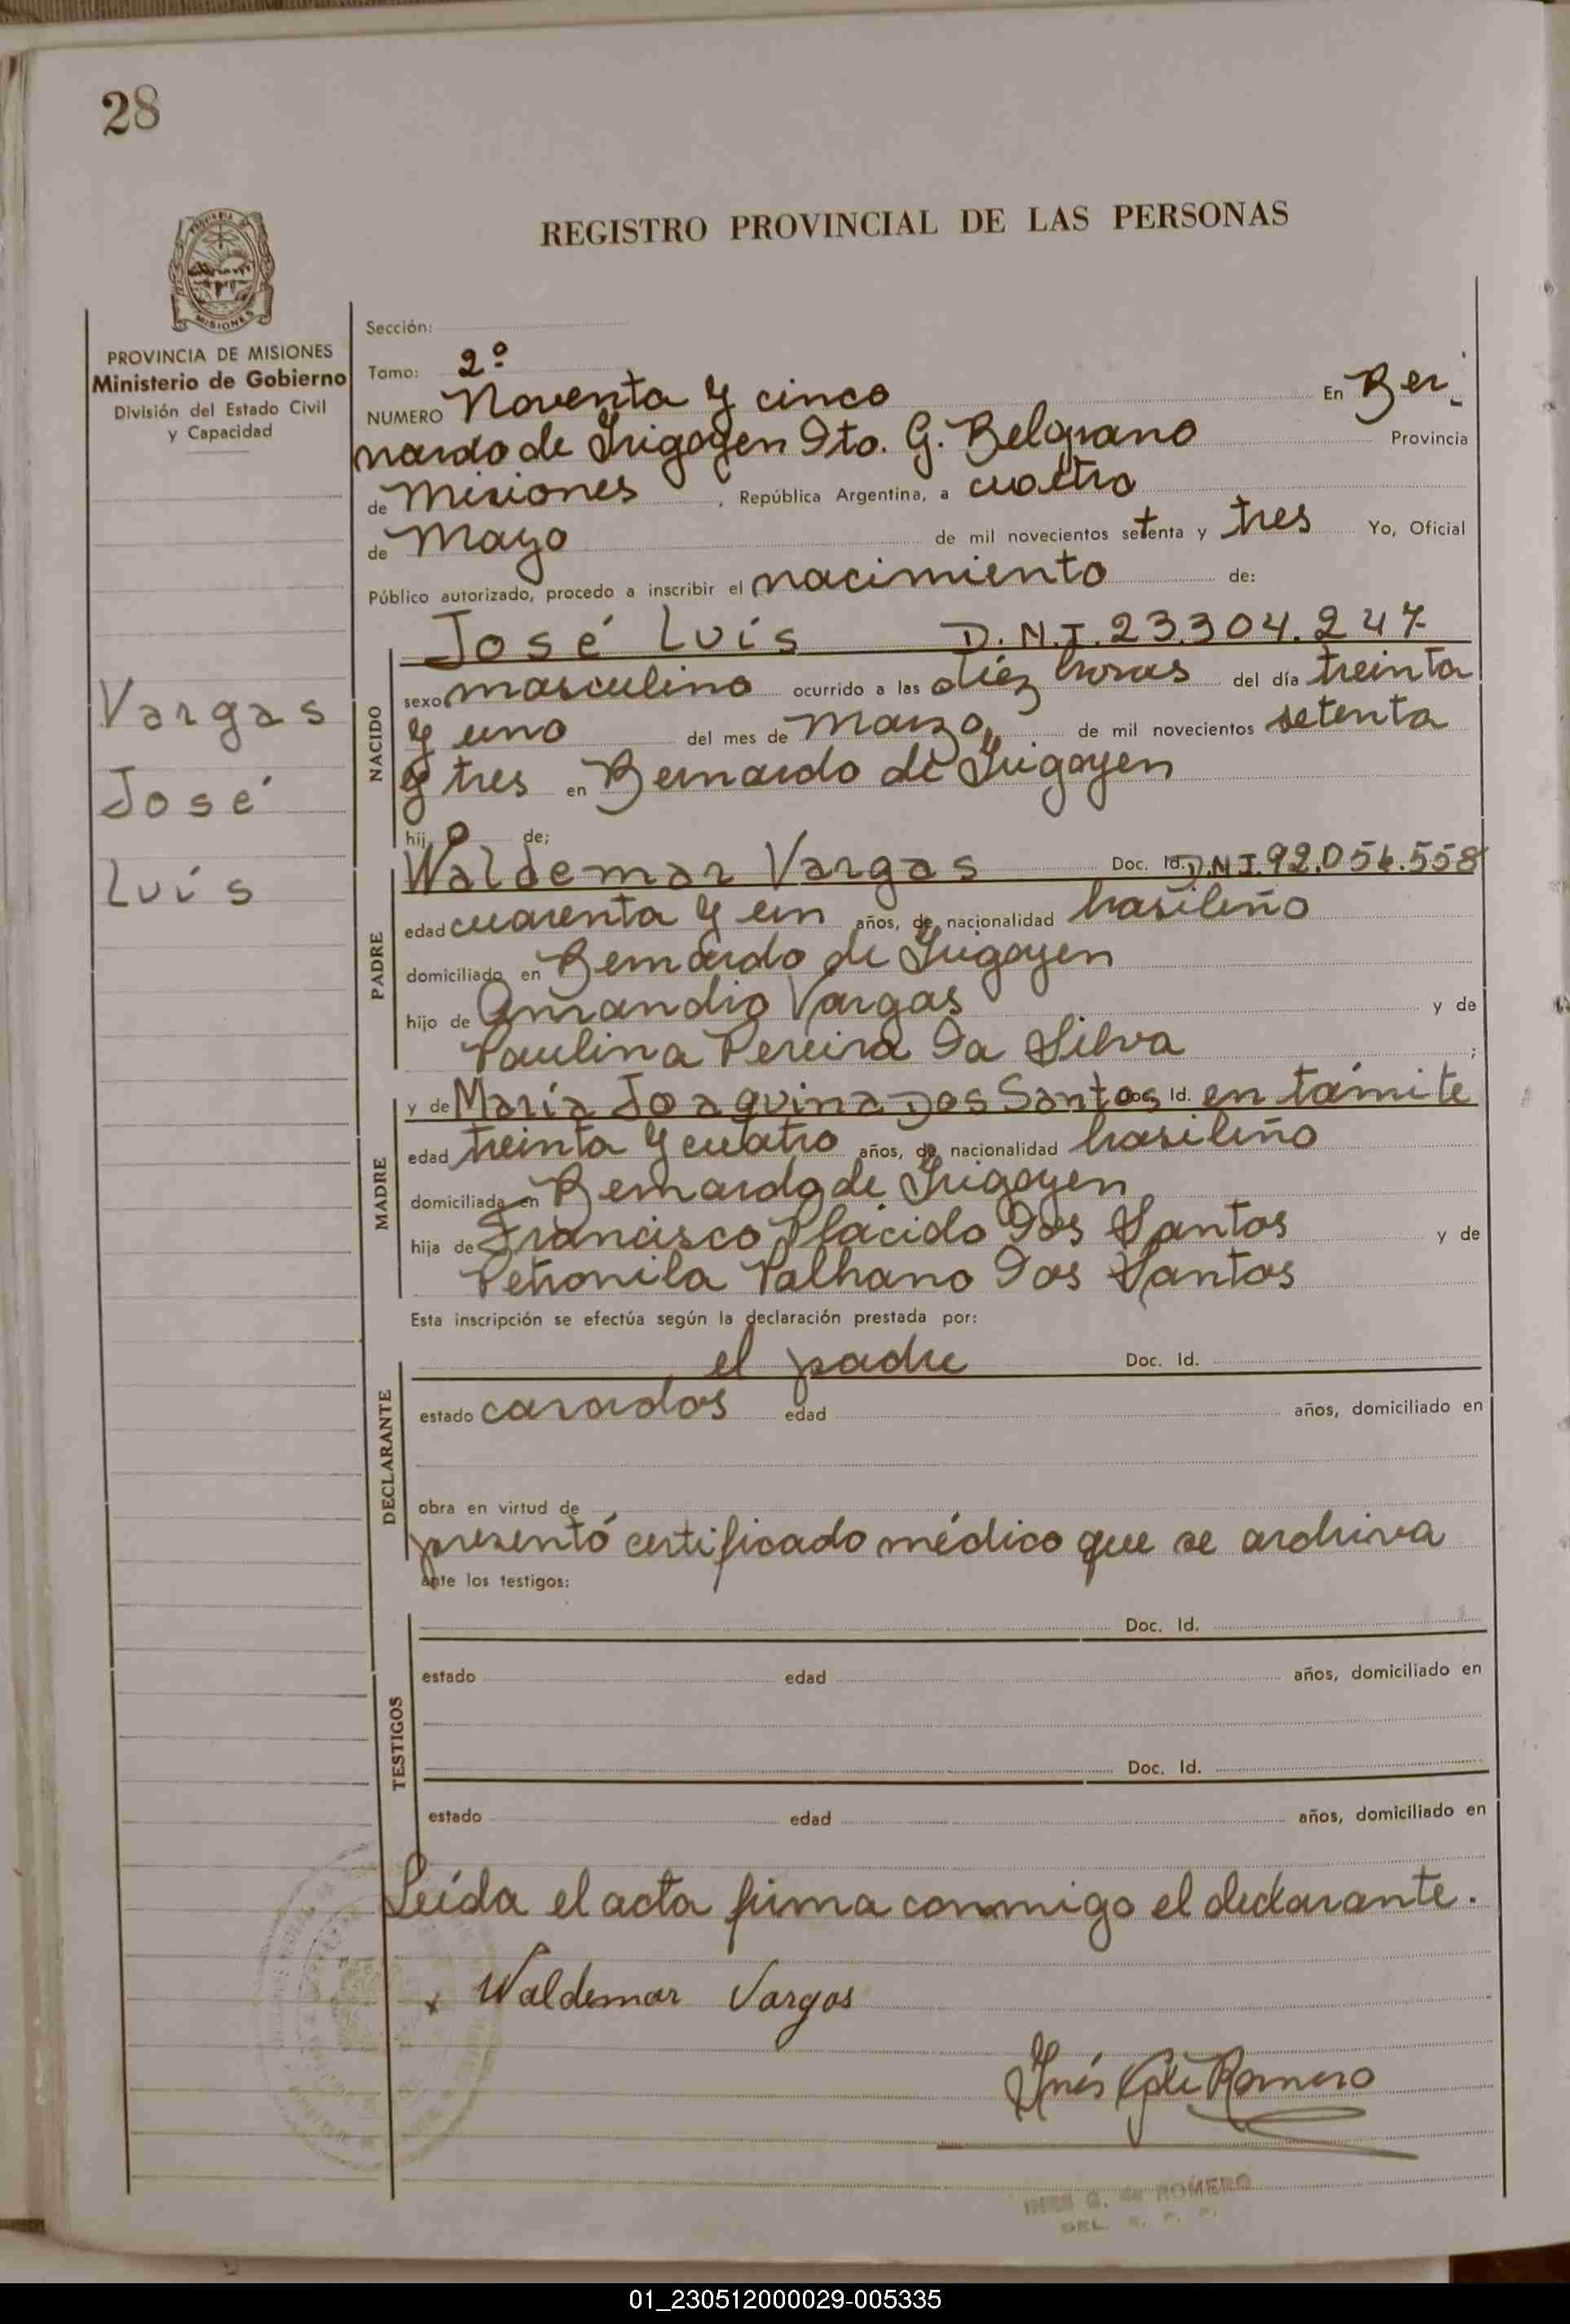 28
REGISTRO PROVINCIAL DE LAS PERSONAS
MISIONES
PROVINCIA DE MISIONES
Ministerio de Gobierno
División del Estado Civil
y Capacidad
Vargas
José
Luís
Sección:
Tomo: 2º
NUMERO Noventa y cinco En Ber-
nardo de Irigoyen Dto. G. Belgrano Provincia
de Misiones, República Argentina, a cuatro
de Mayo de mil novecientos setenta y tres Yo, Oficial
Público autorizado, procedo a inscribir el nacimiento de:
NACIDO
José Luís D.N.I. 23.304.247
sexo masculino ocurrido a las diéz horas del día treinta
y uno del mes de Marzo, de mil novecientos setenta
y tres en Bernardo de Irigoyen
hijo de;
PADRE
Waldemar Vargas Doc. Id. D.N.I. 92.054.558
edad cuarenta y un años, de nacionalidad brasileño
domiciliado en Bernardo de Irigoyen
hijo de Amandio Vargas y de
Paulina Pereira Da Silva ;
MADRE
y de María Joaquina Dos Santos Doc. Id. en támite
edad treinta y cuatro años, de nacionalidad brasileño
domiciliada en Bernardo de Irigoyen
hija de Francisco Plácido Dos Santos y de
Petronila Palhano Dos Santos
Esta inscripción se efectúa según la declaración prestada por:
DECLARANTE
el padre Doc. Id.
estado casados edad años, domiciliado en
obra en virtud de
presentó certificado médico que se archiva
ante los testigos:
TESTIGOS
Doc. Id.
estado edad años, domiciliado en
Doc. Id.
estado edad años, domiciliado en
Leída el acta firma conmigo el declarante.
x Waldemar Vargas
Inés de Romero
INES G. de ROMERO
DEL. R. P. P.
01_230512000029-005335